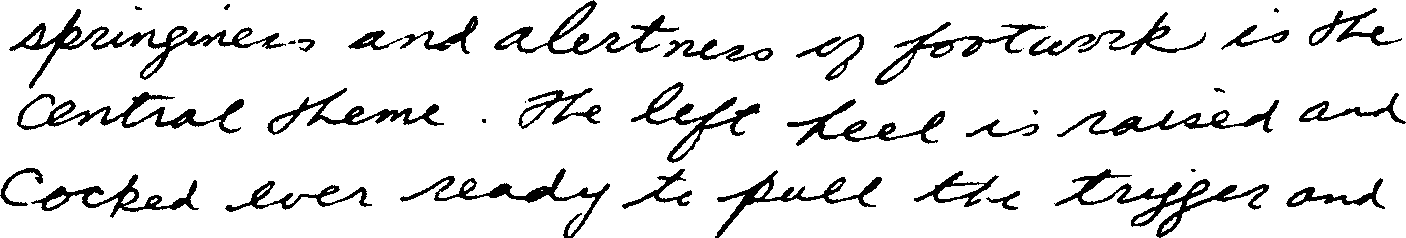 springiness and alertness of footwork is the
central theme. The left heel is raised and
Cocked ever ready to pull the trigger and